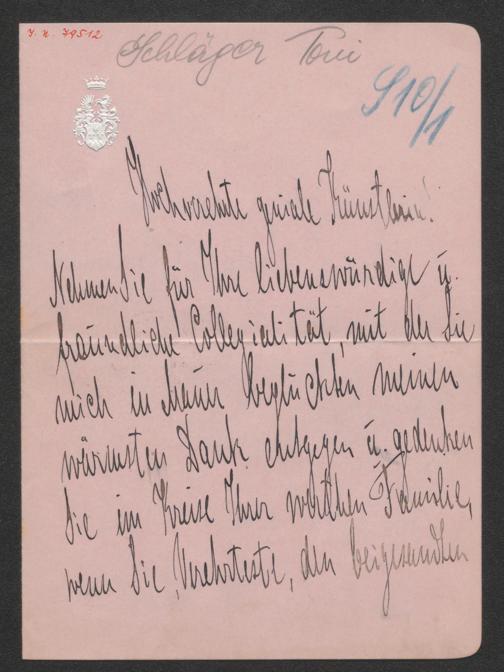 J. N. 79512
Schläger Toni
S10/1
Hochverehrte geniale Künstlerin!
Nehmen Sie für Ihre liebenswürdige u.
freundliche Collegialität, mit der Sie
mich in beglückten meinen
wärmsten Dank entgegen u. gedenken
Sie im Kreise Ihrer werthen Familie,
wenn Sie, Verehrteste, den beigesandten